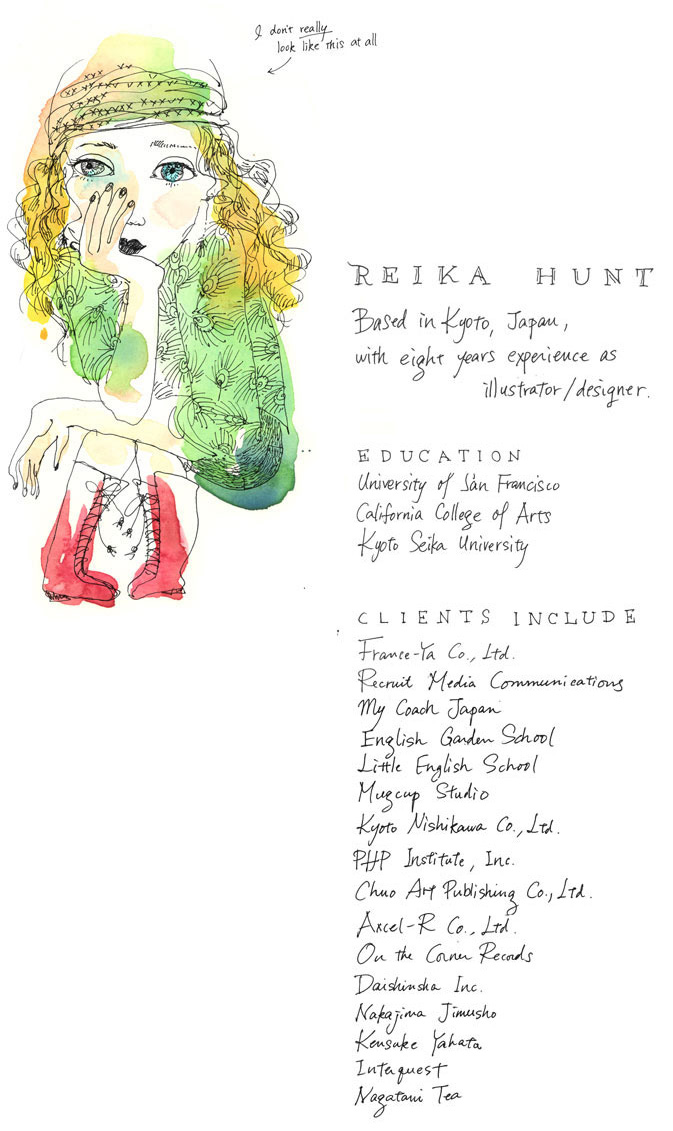 I don't really
look like this at all
REIKA HUNT
Based in Kyoto, Japan,
with eight years experience as
illustrator/designer.
EDUCATION
University of San Francisco
California College of Arts
Kyoto Seika University
CLIENTS INCLUDE
France-Ya Co., Ltd.
Recruit Media Communications
My Coach Japan
English Garden School
Little English School
Mugcup Studio
Kyoto Nishikawa Co., Ltd.
PHP Institute, Inc.
Chuo Art Publishing Co., Ltd.
Axcel-R Co., Ltd.
On the Corner Records
Daishinsha Inc.
Nakajima Jimusho
Kensuke Yahata
Interquest
Nagatani Tea